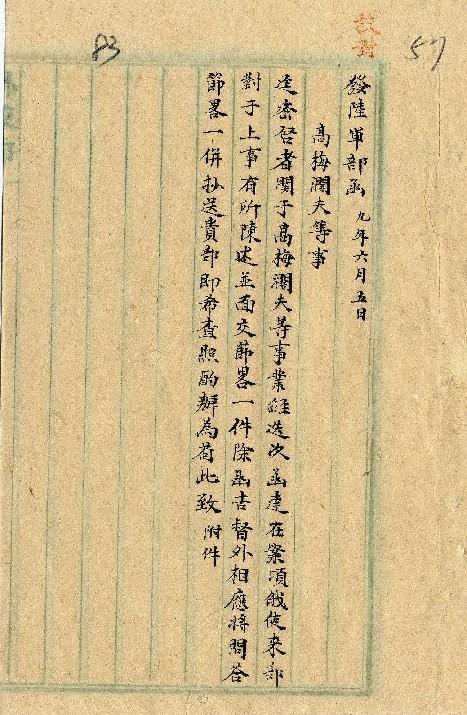 校對
57
83
發陸軍部函 九年六月五日
高梅闊夫等事
逕密啓者關于高梅闊夫等事業經迭次函達在案頃俄使來部
對于上事有所陳述並面交節畧一件除函吉督外相應將問答
節畧一併抄送貴部即希查照酌辦為荷此致 附件